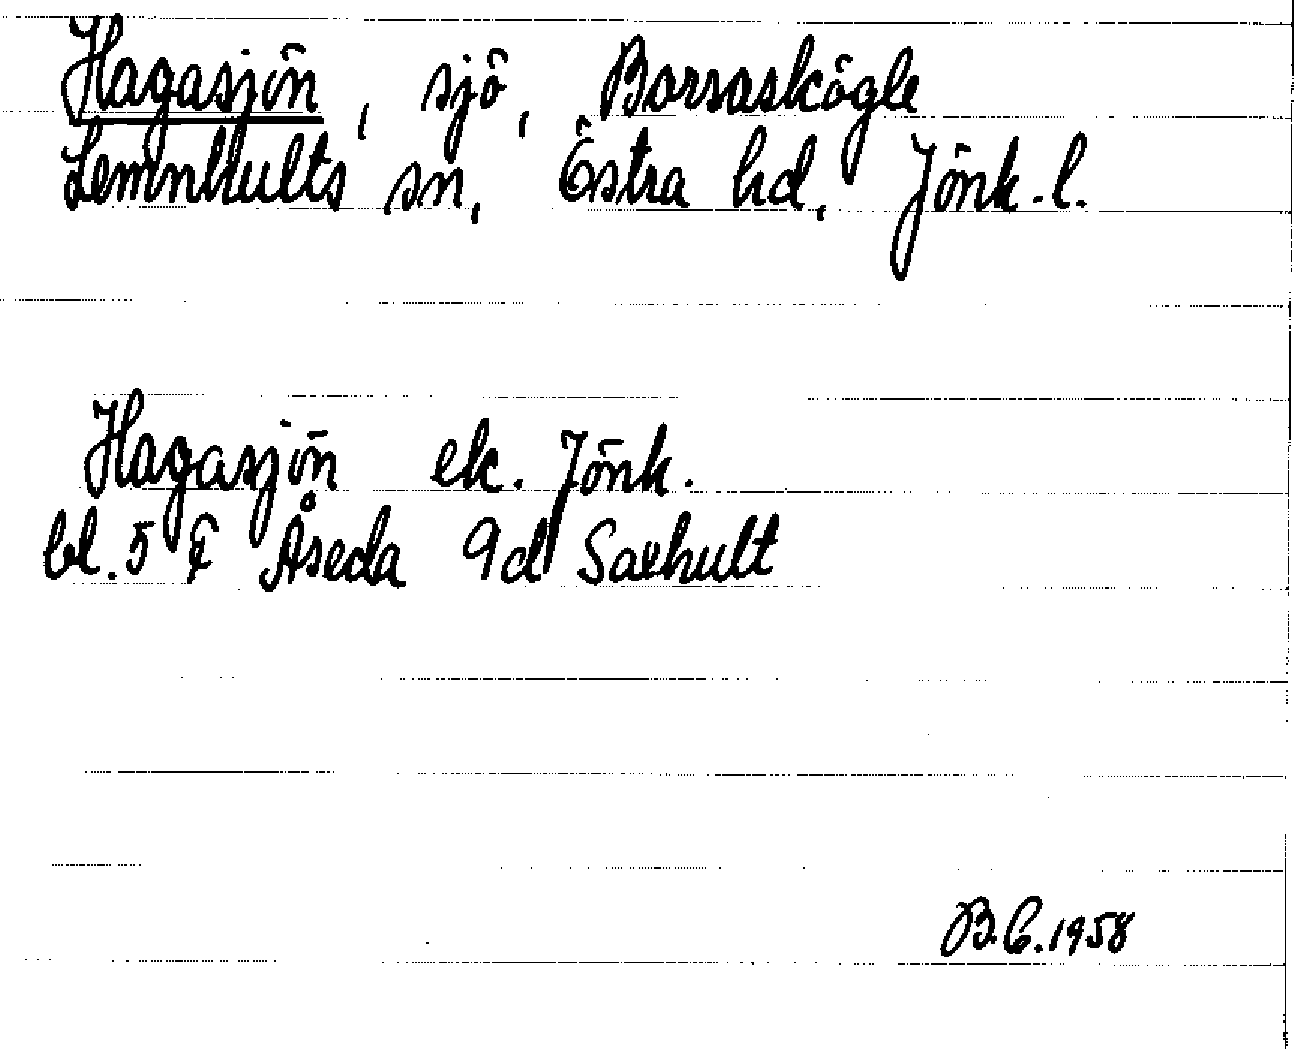 Hagasjön, sjö, Borraskögle
Lemnhults sn, Östra hd, Jönk.l.
Hagasjön ek. Jönk.
bl. 5 F Åseda 9d Saxhult
B.C. 1958